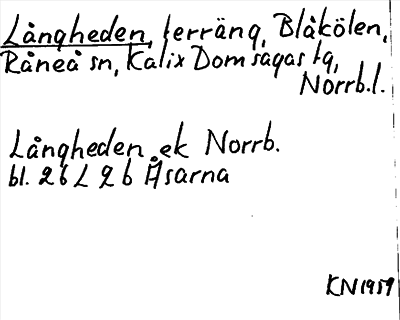 Långheden, terräng, Blåkölen,
Råneå sn, Kalix Domsagas tg,
Norrb.l.
Långheden ek Norrb.
bl. 26 L 9 b Åsarna
KN 1959